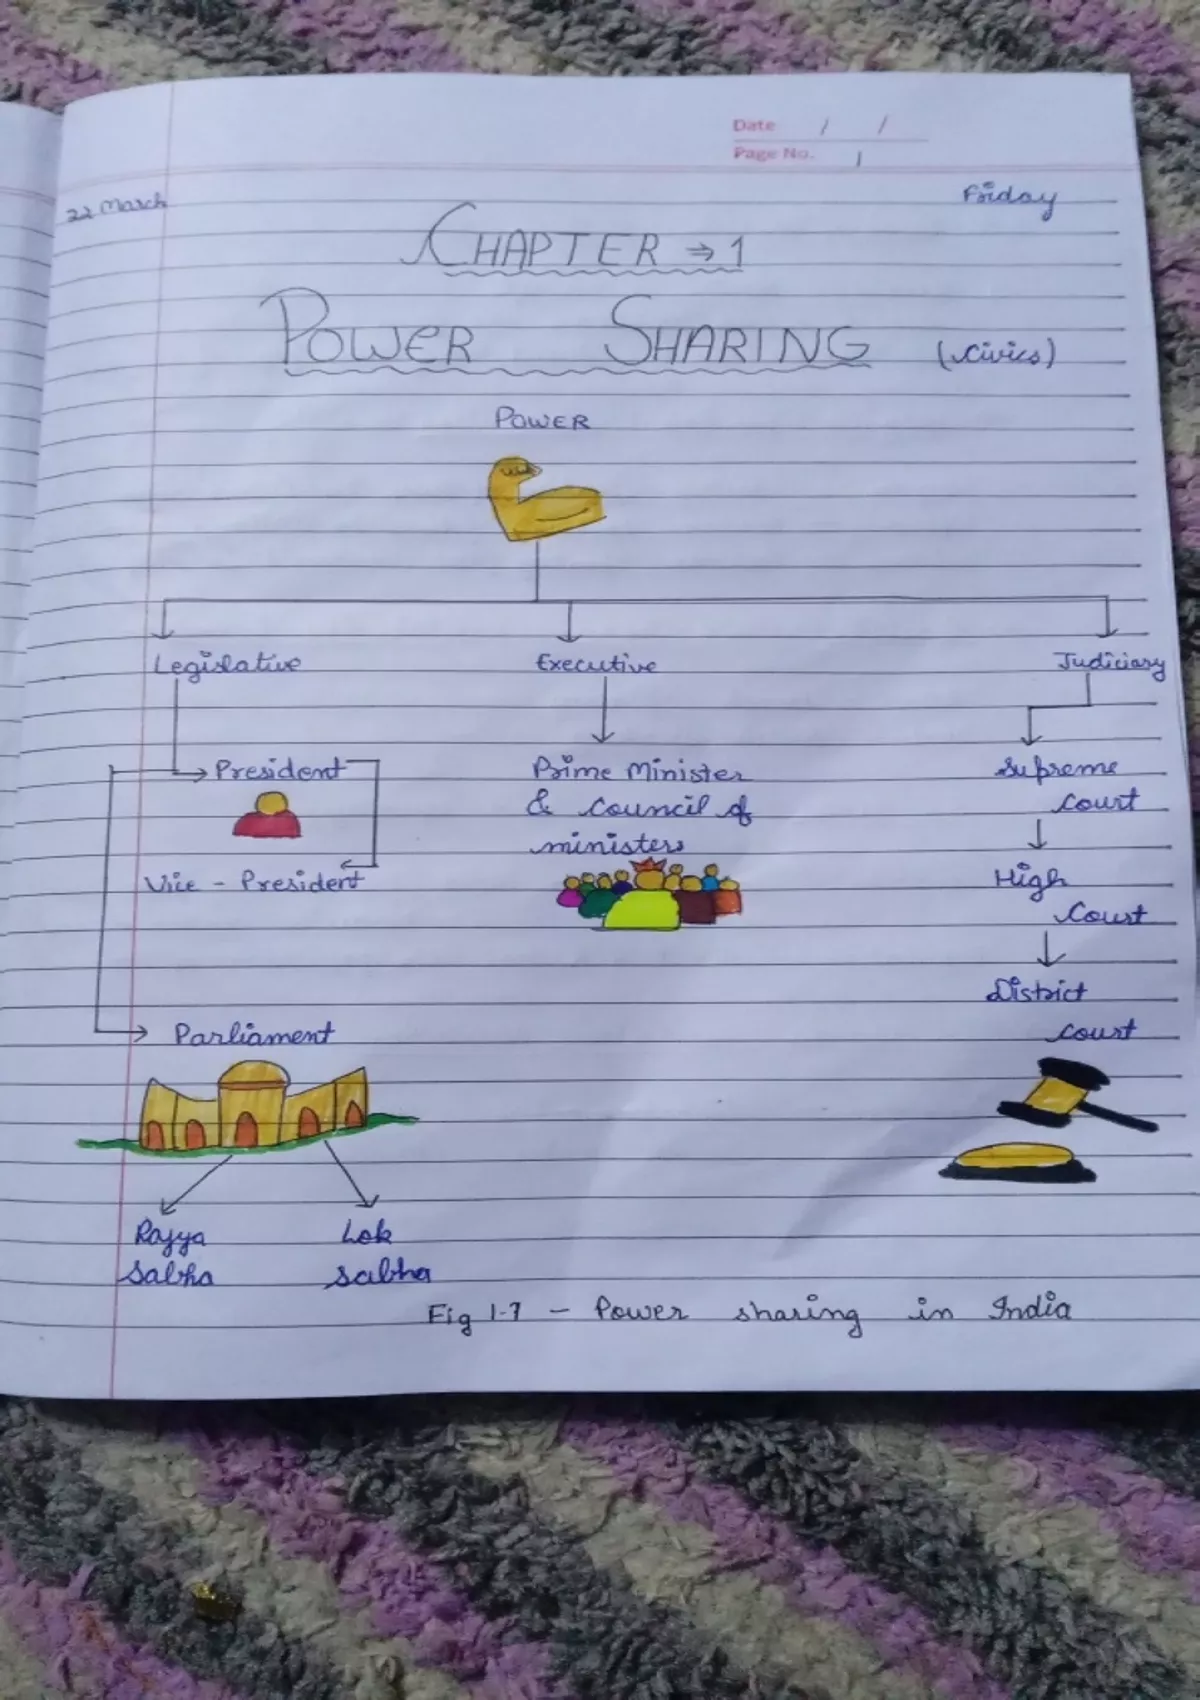 Date / /
Page No. 1
22 March Friday
CHAPTER ⇒ 1
POWER SHARING (Civics)
POWER
Legislative Executive Judiciary
President Prime Minister Supreme
& Council of Court
ministers
Vice - President High
Court
District
Parliament Court
Rajya Lok
Sabha Sabha
Fig 1.7 - Power sharing in India